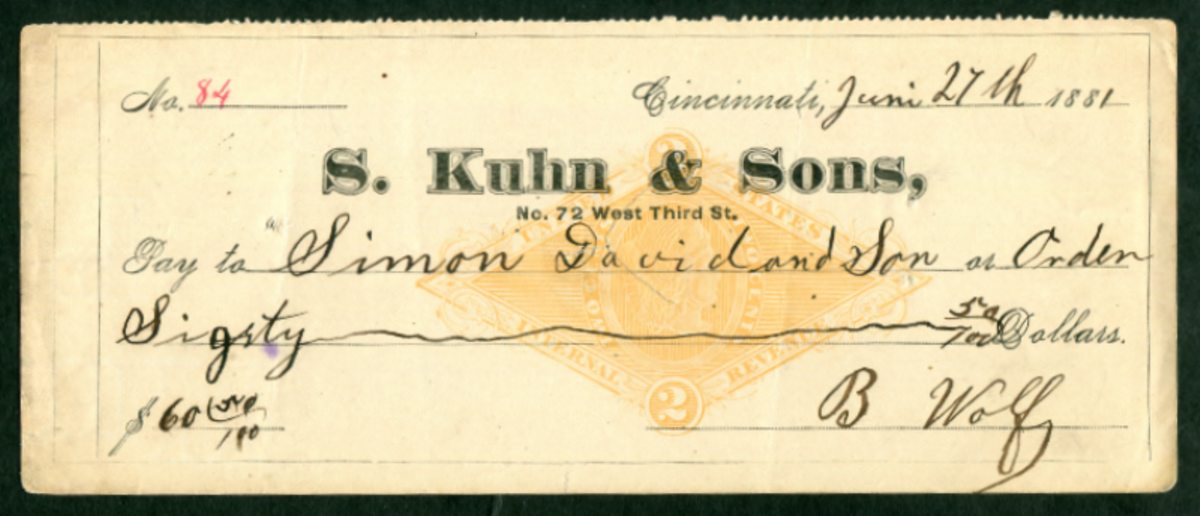 No. 84 Cincinnati, Juni 27th 1881
S. Kuhn & Sons,
No. 72 West Third St.
UNITED STATES
Pay to Simon David and Son or Order
Sigsty 50/100 Dollars.
INTERNAL REVENUE
$ 60 50/100
B Wolf
2
2